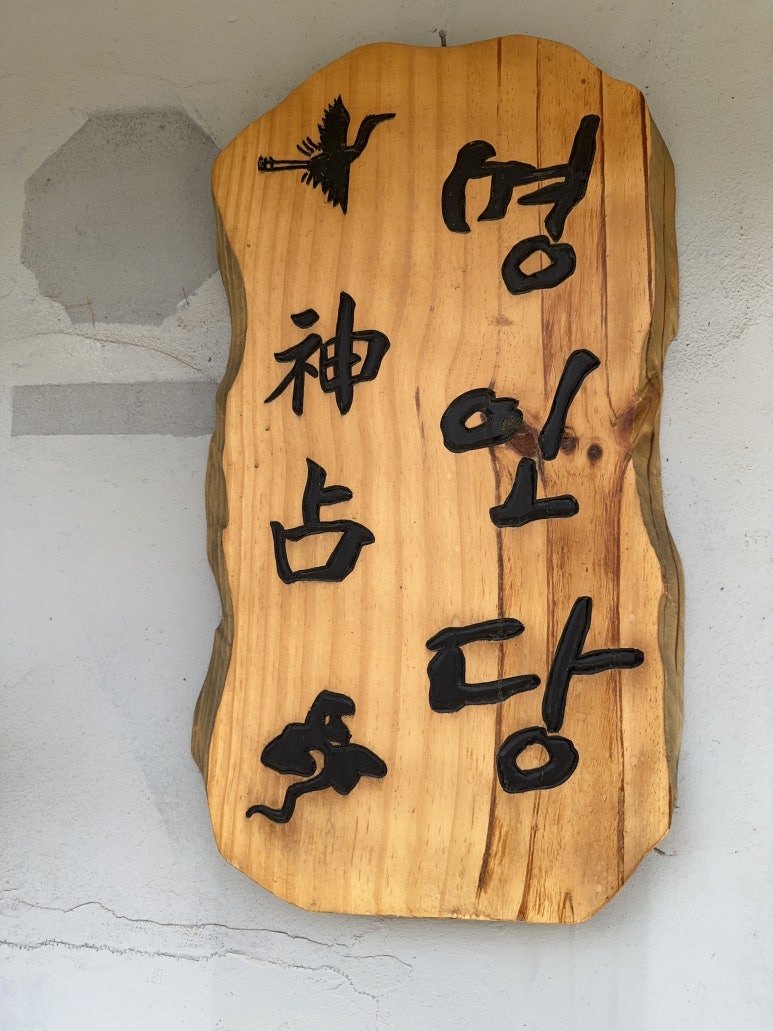 명인당
神占